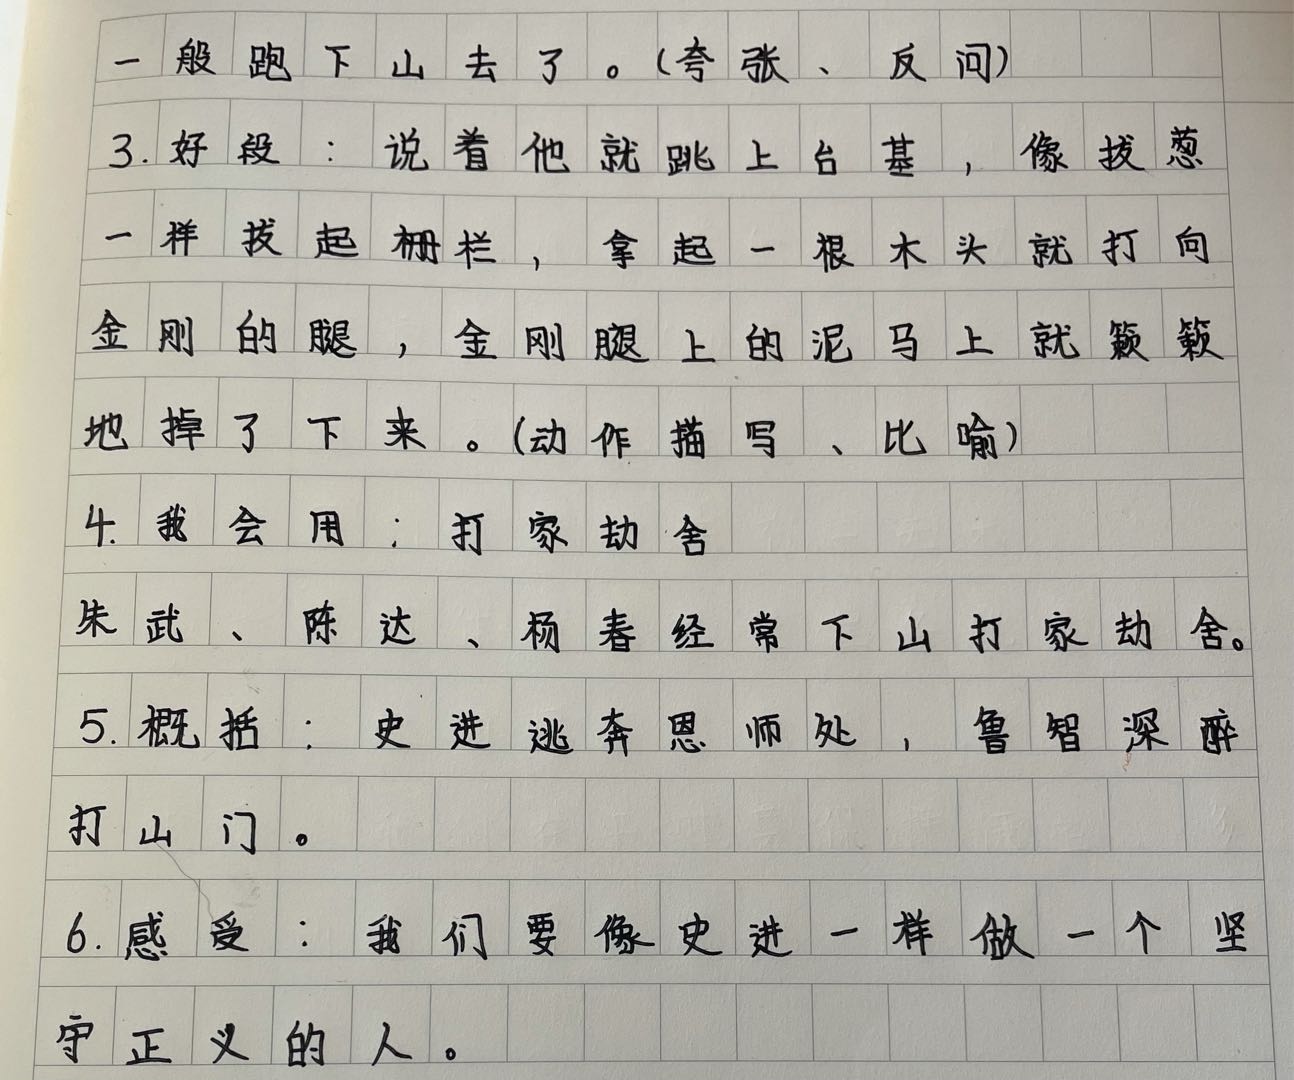 一般跑下山去了。(夸张、反问)
3.好段：说着他就跳上台基，像拔葱
一样拔起栅栏，拿起一根木头就打向
金刚的腿，金刚腿上的泥马上就簌簌
地掉了下来。(动作描写、比喻)
4.我会用：打家劫舍
朱武、陈达、杨春经常下山打家劫舍。
5.概括：史进逃奔恩师处，鲁智深醉
打山门。
6.感受：我们要像史进一样做一个坚
守正义的人。